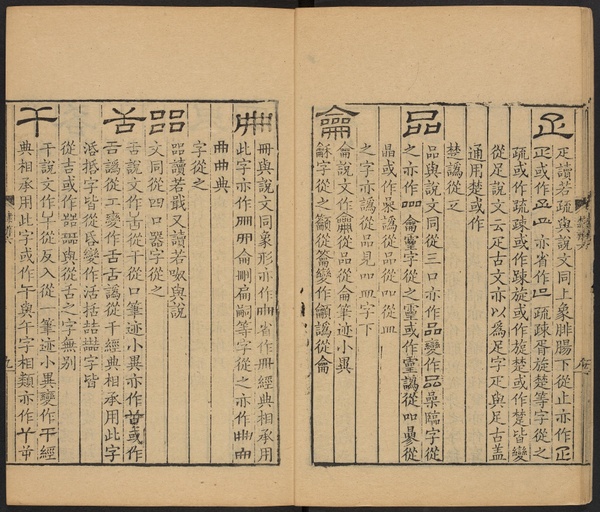 疋 疋讀若疏與說文同上象腓腸下從止亦作疋
疋或作疋疋亦省作疋疏疎胥旋楚等字從之
疏或作䟽疎或作踈旋或作㫌楚或作楚皆變
從足說文云疋古文亦以為足字疋與足古蓋
通用楚或作
楚譌從疋
品 品與說文同從三口亦作品變作品喿臨字從
之亦作龠靈字從之靈或作靈譌從喿從
晶或作譌從品從從
之字亦譌從品見字下
龠 龠說文作龠從品從侖筆迹小異
龢字從之籲從籥變作籲譌從龠
冊 冊與說文同象形亦作冊省作冊經典相承用
此字亦作侖刪扁嗣等字從之亦作
曲典
字從之
㗊 㗊讀若戢又讀若呶與說
文同從四口器字從之
舌 舌說文作舌從干從口筆迹小異亦作或作
舌譌從工變作舌舌譌從千經典相承用此字
湉捪字皆從昏變作活括喆字皆
從吉或作與從舌之字無別
干 干說文作干從反入從一筆迹小異變作干經
典相承用此字或作午與午字相類亦作
九